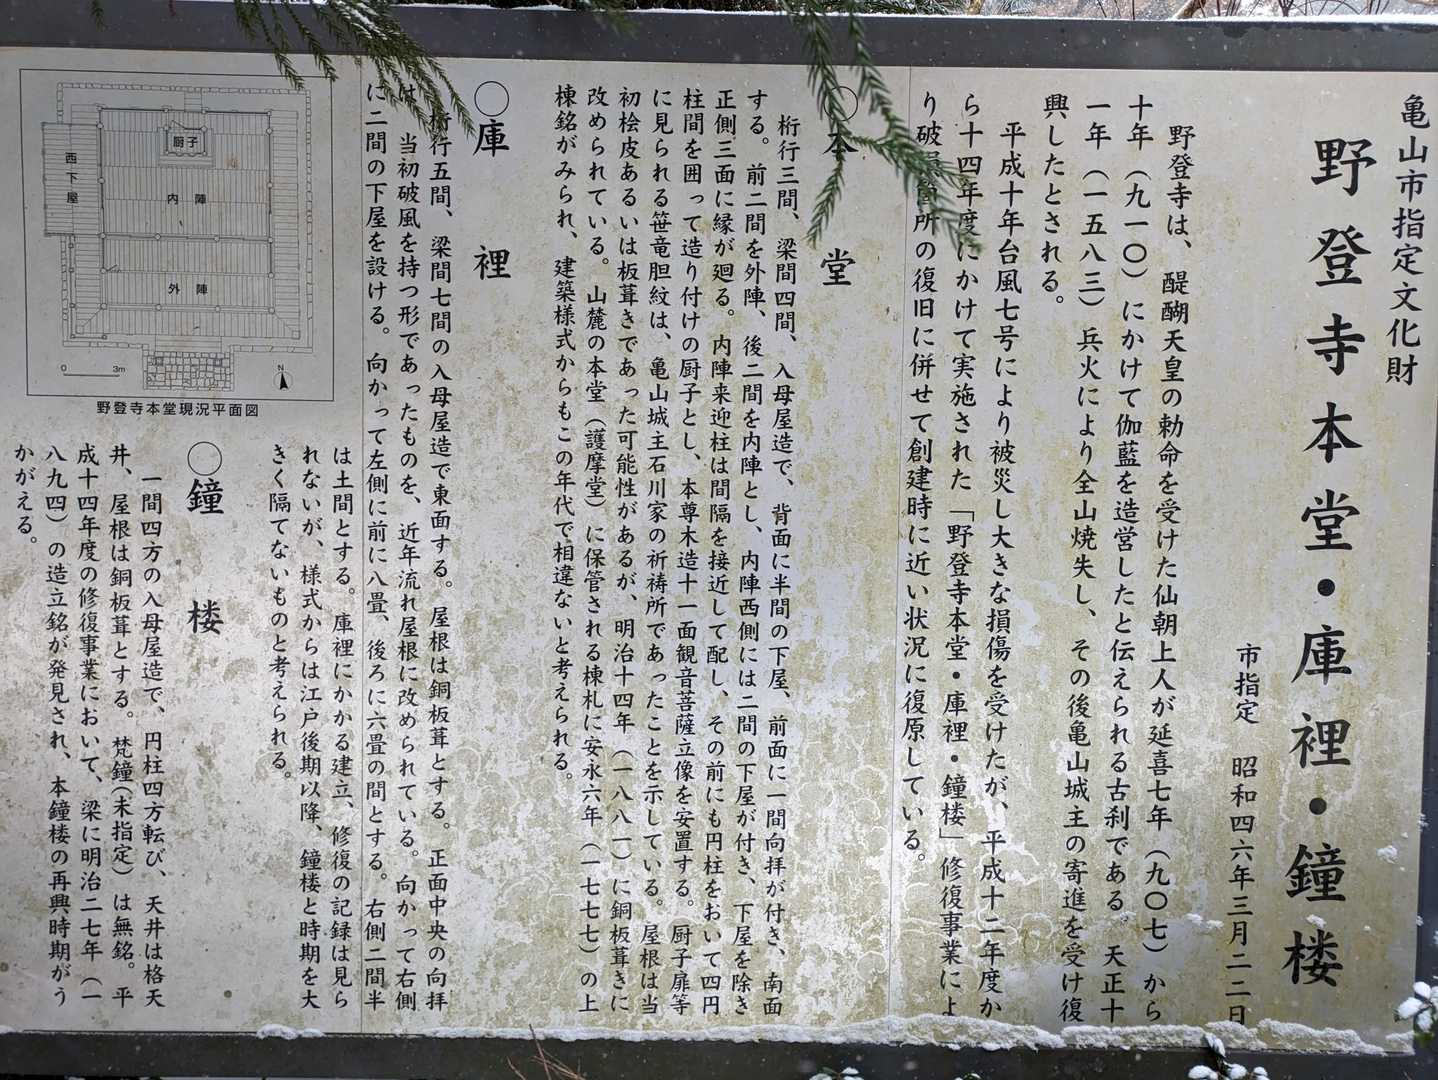 亀山市指定文化財
野登寺本堂・庫裡・鐘楼
市指定　昭和四六年三月二二日
野登寺は、醍醐天皇の勅命を受けた仙朝上人が延喜七年（九〇七）から
十年（九一〇）にかけて伽藍を造営したと伝えられる古刹である。天正十
一年（一五八三）兵火により全山焼失し、その後亀山城主の寄進を受け復
興したとされる。
平成十年台風七号により被災し大きな損傷を受けたが、平成十二年度か
ら十四年度にかけて実施された「野登寺本堂・庫裡・鐘楼」修復事業によ
り破損箇所の復旧に併せて創建時に近い状況に復原している。
〇本堂
桁行三間、梁間四間、入母屋造で、背面に半間の下屋、前面に一間向拝が付き、南面
する。前二間を外陣、後二間を内陣とし、内陣西側には二間の下屋が付き、下屋を除き
正側三面に縁が廻る。内陣来迎柱は間隔を接近して配し、その前にも円柱をおいて四円
柱間を囲って造り付けの厨子とし、本尊木造十一面観音菩薩立像を安置する。厨子扉等
に見られる笹竜胆紋は、亀山城主石川家の祈祷所であったことを示している。屋根は当
初桧皮あるいは板葺きであった可能性があるが、明治十四年（一八八一）に銅板葺きに
改められている。山麓の本堂（護摩堂）に保管される棟札に安永六年（一七七七）の上
棟銘がみられ、建築様式からもこの年代で相違ないと考えられる。
〇庫裡
桁行五間、梁間七間の入母屋造で東面する。屋根は銅板葺とする。正面中央の向拝
は、当初破風を持つ形であったものを、近年流れ屋根に改められている。向かって右側
に二間の下屋を設ける。向かって左側に前に八畳、後ろに六畳の間とする。右側二間半
は土間とする。庫裡にかかる建立、修復の記録は見ら
れないが、様式からは江戸後期以降、鐘楼と時期を大
きく隔てないものと考えられる。
〇鐘楼
一間四方の入母屋造で、円柱四方転び、天井は格天
井、屋根は銅板葺とする。梵鐘（未指定）は無銘。平
成十四年度の修復事業において、梁に明治二七年（一
八九四）の造立銘が発見され、本鐘楼の再興時期がう
かがえる。
厨子
西下屋
内陣
外陣
0 3m
N
野登寺本堂現況平面図